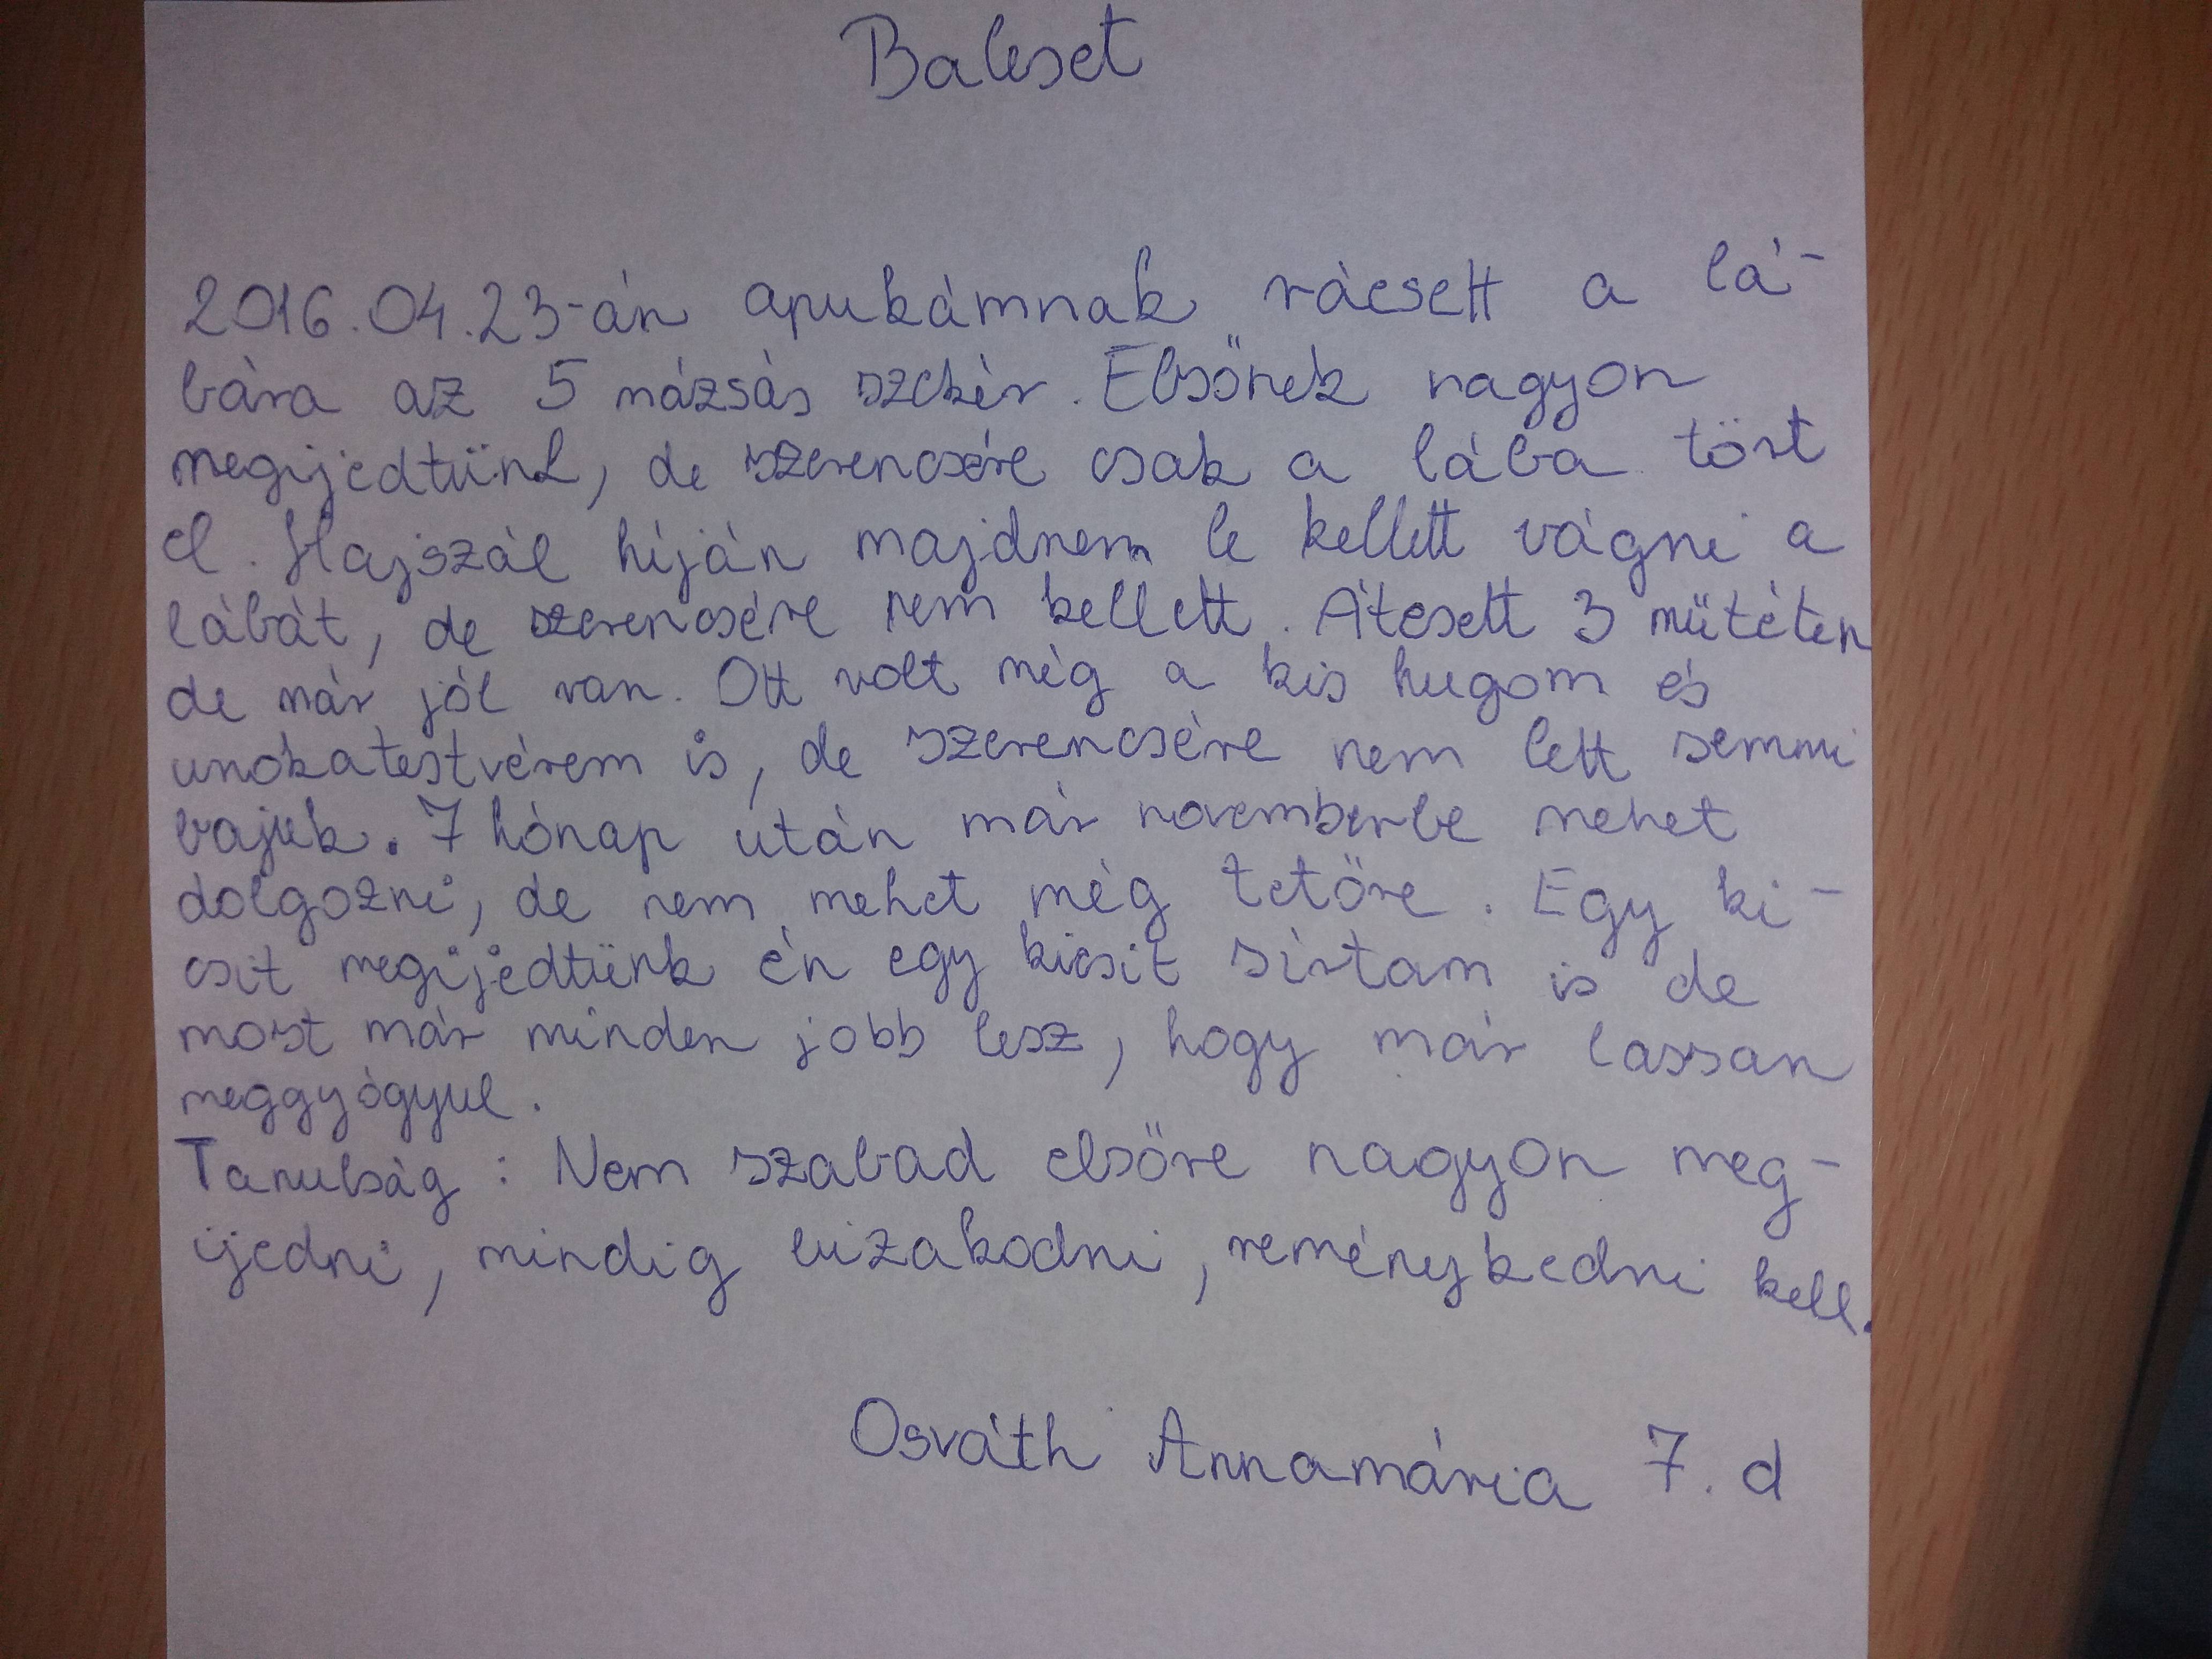 Baleset
2016.04.23-án apukámnak ráesett a lá-
bára az 5 mázsás szekér. Elsőnek nagyon
megijedtünk, de szerencsére csak a lába tört
el. Hajszál híján majdnem le kellett vágni a
lábát, de szerencsére nem kellett. Átesett 3 műtéten
de már jól van. Ott volt még a kis hugom és
unokatestvérem is, de szerencsére nem lett semmi
bajuk. 7 hónap után már novemberbe mehet
dolgozni, de nem mehet még tetőre. Egy ki-
csit megijedtünk én egy kicsit sírtam is de
most már minden jobb lesz, hogy már lassan
meggyógyul.
Tanulság: Nem szabad elsőre nagyon meg-
ijedni, mindig bizakodni, reménykedni kell.
Osváth Annamária 7. d